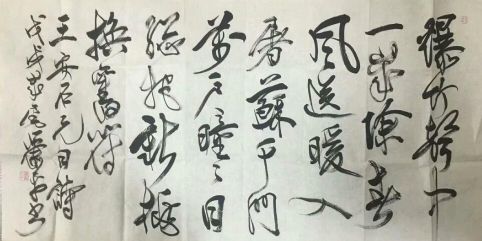 爆竹聲中
一歲除春
風送暖入
屠蘇千門
萬戶瞳瞳日
總把新桃
換舊符
王安石元日詩
戊戌歲尾